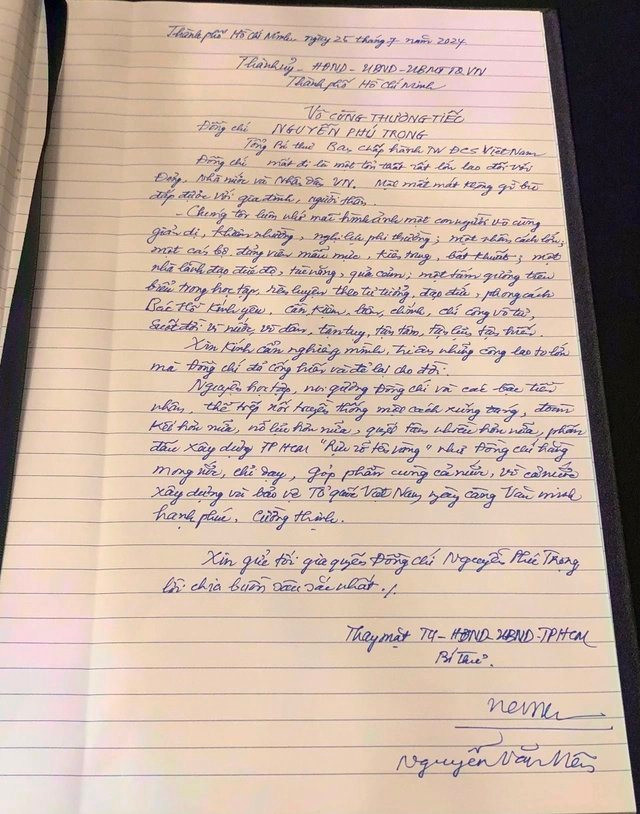 Thành phố Hồ Chí Minh, ngày 25 tháng 7 năm 2024
Thành ủy - HĐND - UBND - UBMTTQVN
Thành phố Hồ Chí Minh
Vô cùng thương tiếc
Đồng chí NGUYỄN PHÚ TRỌNG
Tổng Bí thư Ban Chấp hành TW ĐCS Việt Nam
Đồng chí mất đi là một tổn thất rất lớn lao đối với
Đảng, Nhà nước và Nhân dân VN. Một mất mát không gì bù
đắp được với gia đình, người thân.
- Chúng tôi luôn nhớ mãi hình ảnh một con người vô cùng
giản dị, khiêm nhường, nghị lực phi thường; một nhân cách lớn;
một cán bộ đảng viên mẫu mực, kiên trung, bất khuất; một
nhà lãnh đạo đức độ, tài năng, quả cảm; một tấm gương tiêu
biểu trong học tập, rèn luyện theo tư tưởng, đạo đức, phong cách
Bác Hồ kính yêu, cần kiệm, liêm, chính, chí công vô tư,
suốt đời vì nước, vì dân, tận tụy, tận tâm, tận lực, tận hiến.
Xin kính cẩn nghiêng mình, tri ân những công lao to lớn
mà Đồng chí đã cống hiến và để lại cho đời.
Nguyện học tập, noi gương Đồng chí và các bậc tiền
nhân, thế truyền thống một cách xứng đáng, đoàn
kết hơn nữa, nỗ lực hơn nữa, quyết tâm nhiều hơn nữa, phấn
đấu xây dựng TP HCM "Rực rỡ tên vàng" như Đồng chí hằng
mong mỏi, chỉ dạy, góp phần cùng cả nước, vì cả nước
xây dựng và bảo vệ Tổ quốc Việt Nam ngày càng Văn minh
hạnh phúc, Cường thịnh.
Xin gửi tới gia quyến Đồng chí Nguyễn Phú Trọng
lời chia buồn sâu sắc nhất ./.
Thay mặt TU - HĐND - UBND - TPHCM
Bí thư
Nguyễn Văn Nên